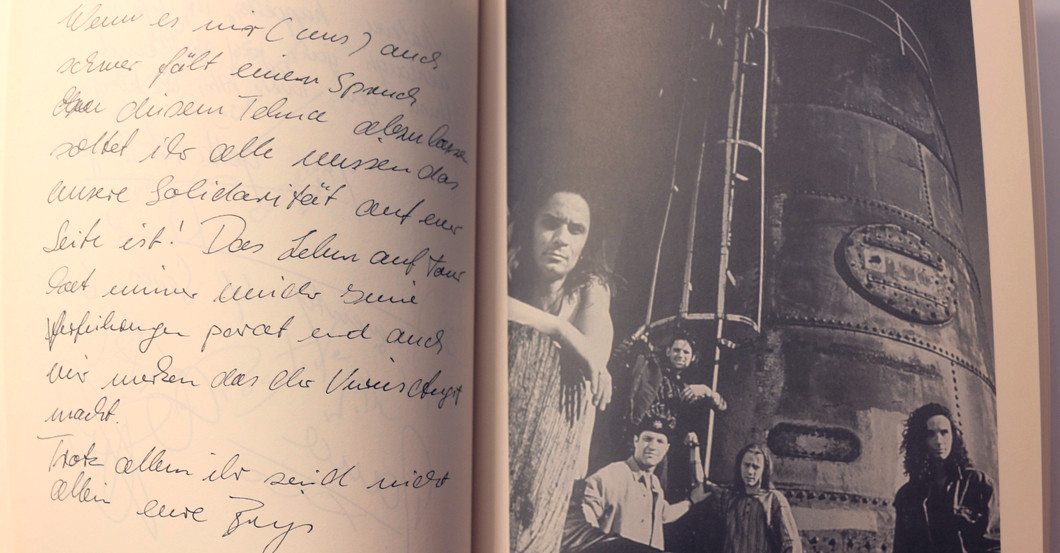 Wenn es mir (uns) auch
schwer fält einem Spruch
diesem Tehma abzulassen
soltet ihr alle wissen das
unsere Solidarität auf eurer
Seite ist! Das Leben auf Tour
hat immer wieder seine
Verfürungen parat und auch
wir merken das der Virus Angst
macht.
Trotz allem ihr seid nicht
allein eure Boys